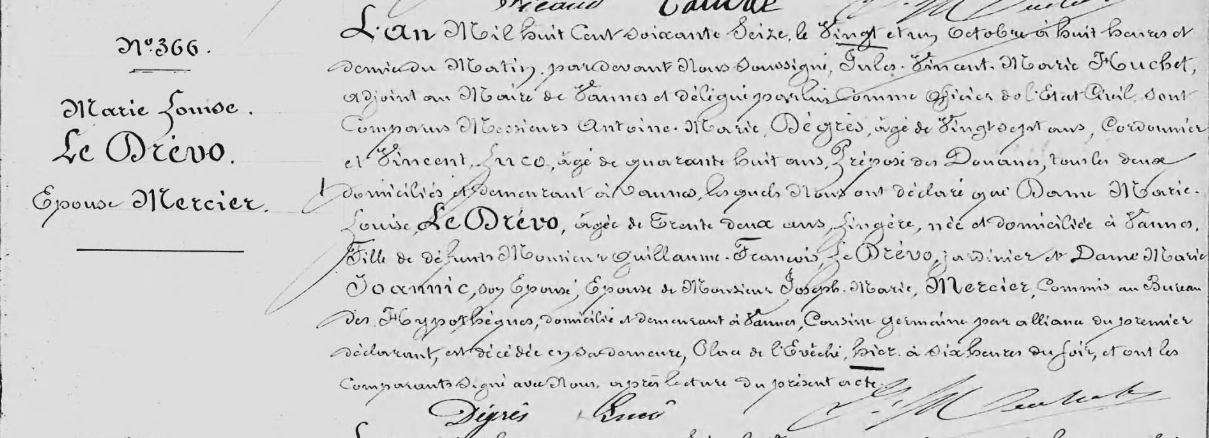 Nº 366.
Marie Louise.
Le Drévo.
Epouse Mercier.
L'An Mil huit Cent Soixante Seize, le Vingt et un Octobre à huit heures et
demie du Matin, pardevant Nous Soussigné, Jules-Vincent-Marie Huchet,
adjoint au Maire de Vannes et délégué par lui Comme Officier de l'Etat Civil, sont
Comparus Messieurs Antoine-Marie, Dégrés, âgé de Vingt sept ans, Cordonnier
et Vincent, Luco, âgé de quarante huit ans, Préposé des Douanes, tous les deux
domiciliés et demeurant à Vannes, lesquels Nous ont déclaré que Dame Marie-
Louise, Le Drévo, âgée de Trente deux ans, Lingère, née et domiciliée à Vannes,
Fille de défunts Monsieur Guillaume-François, Le Drévo, jardinier et Dame Marie
Joannic, son Epouse, Epouse de Monsieur Joseph-Marie, Mercier, Commis au Bureau
des Hypothèques, domicilié et demeurant à Vannes, Cousine germaine par alliance du premier
déclarant, est décédée en sa demeure, Place de l'Evêché, hier à six heures du soir, et ont les
Comparants Signé avec Nous, après lecture du présent acte.
Dégrés Luco